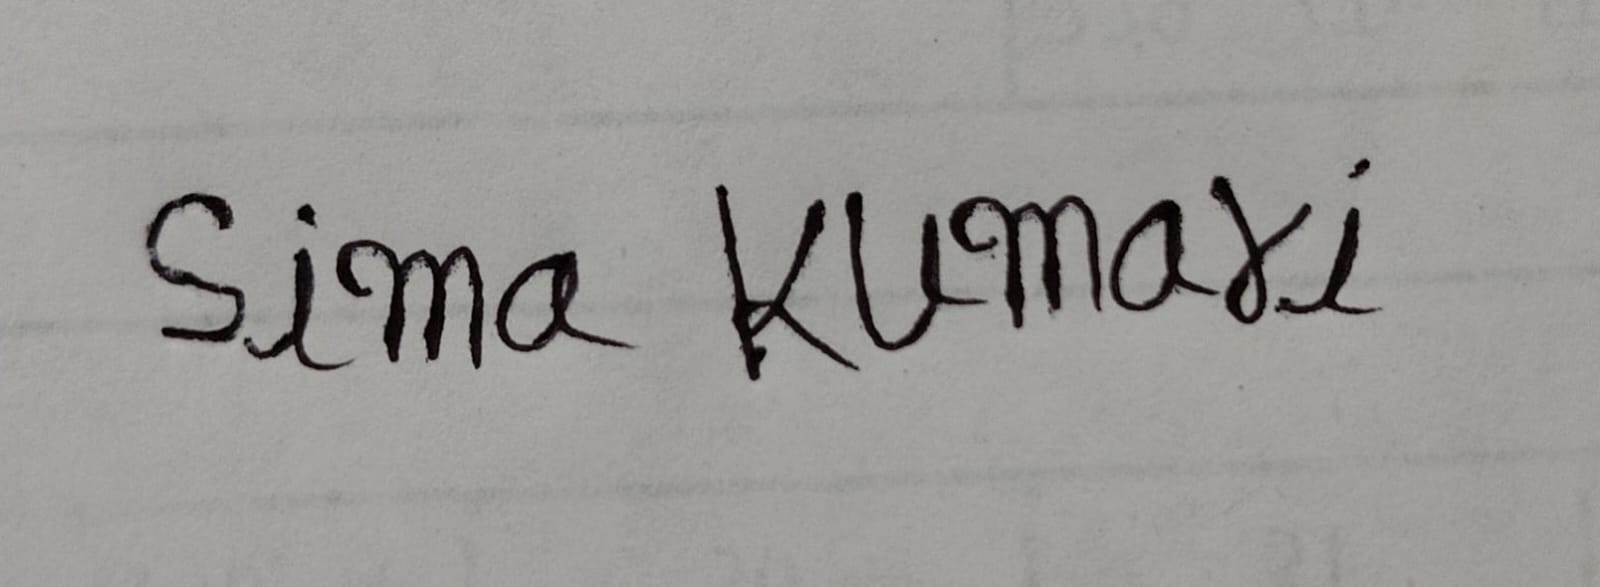 Sima Kumari